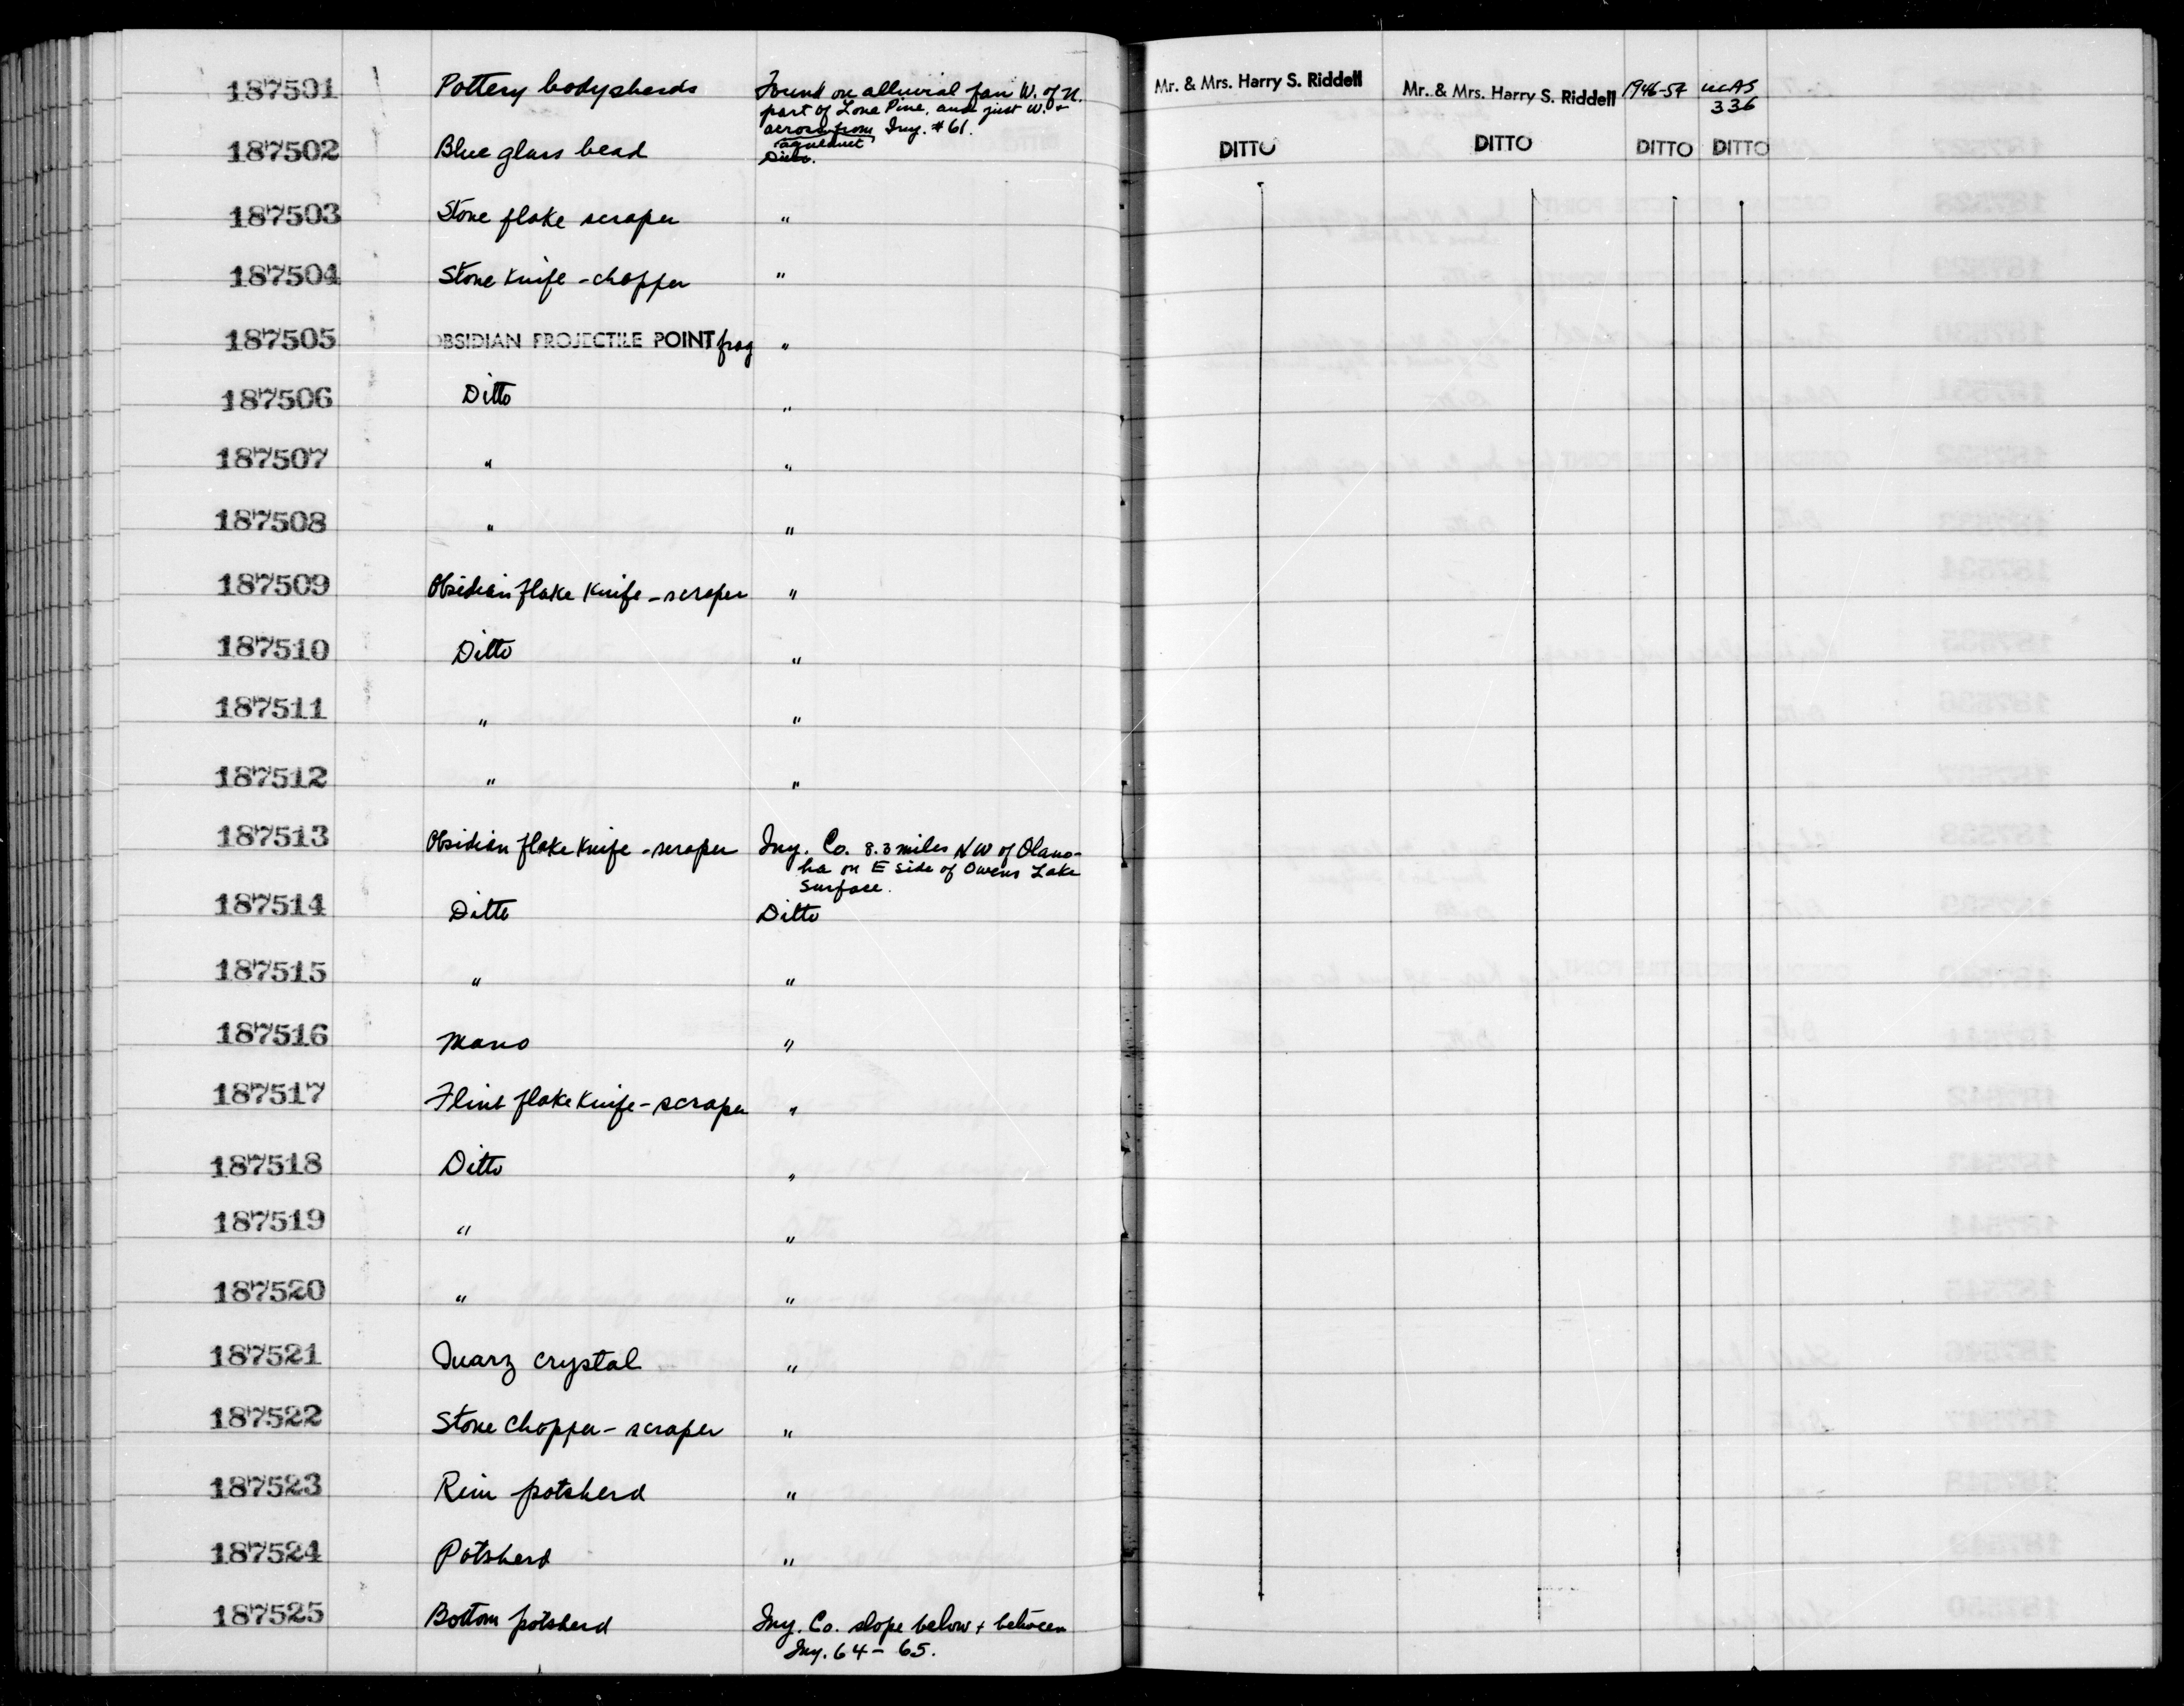 187501 Pottery bodysherds Found on alluvial fan W. of N. Mr. & Mrs. Harry S. Riddell Mr. & Mrs. Harry S. Riddell 1946-57 UCAS
part of Lone Pine, and just W. + 336
across from Iny. #61.
aqueduct
187502 Blue glass bead Ditto. DITTO DITTO DITTO DITTO
187503 Stone flake scraper "
187504 Stone knife - chopper "
187505 OBSIDIAN PROJECTILE POINT frag "
187506 Ditto "
187507 " "
187508 " "
187509 Obsidian flake knife - scraper "
187510 Ditto "
187511 " "
187512 " "
187513 Obsidian flake knife - scraper Iny. Co. 8.3 miles NW of Olanc-
ha on E side of Owens Lake
surface.
187514 Ditto Ditto
187515 " "
187516 Mano "
187517 Flint flake knife - scraper "
187518 Ditto "
187519 " "
187520 " "
187521 Quarz crystal "
187522 Stone chopper - scraper "
187523 Rim potsherd "
187524 Potsherd "
187525 Bottom potsherd Iny. Co. slope below + between
Iny. 64 - 65.